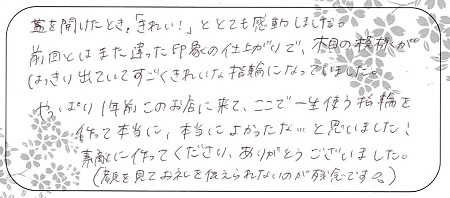 蓋を開けたとき、「きれい！」ととても感動しました。
前回とはまた違った印象の仕上がりで、木目の模様が
はっきり出ていてすごくきれいな指輪になっていました。
やっぱり1年前このお店に来て、ここで一生使う指輪を
作って本当に、本当によかったな…と思いました！
素敵に作ってくださり、ありがとうございました。
（顔を見てお礼を伝えられないのが残念です。）